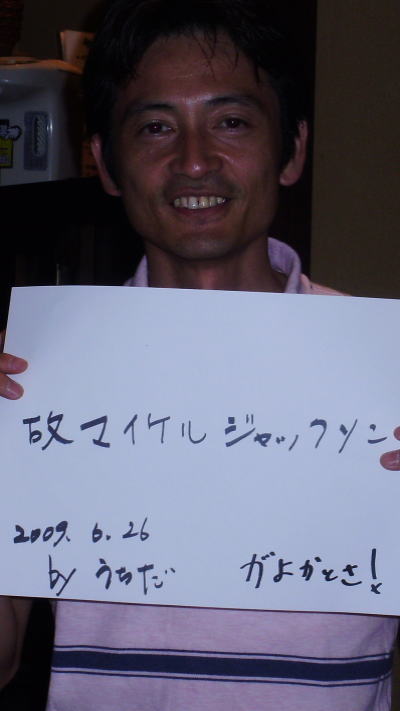 故マイケルジャックソン
2009. 6. 26
by うちだ
がよかとさ!